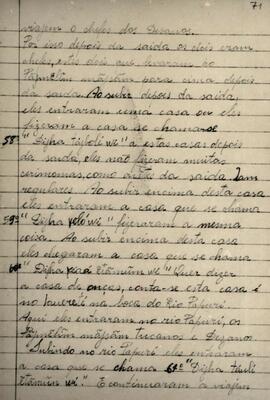 71
viajem o chefes dos Desanos.
Por isso depois da saida os dois eram
chefes, estes dois que levaram ao
Pápmẽlĩn mãhsãm para cima depois
da saida. Ao subir depois da saida,
eles entraram uma casa ou eles
fizeram a casa se chamase
58ª "Diỹha tũboli wi" a estas casas depois
da saida, eles não fizeram muitas
cerimonias, como antes da saida. Iam
regulares. Ao subir encima desta casa
eles entraram a casa que se chama
59ª "Diỹha wi" fizeram a mesma
coisa. Ao subir encima desta casa
eles chegaram a casa que se chama
60ª "Diỹha yaá wi" Quer dizer
a casa de onças, conta-se esta casa é
no Iauaretê na boca do Rio Papuri.
Aqui eles entraram no rio Papuri, os
Pápmẽlĩn mãhsãm Tucanos e Desanos.
Subindo no rio Papuri eles entraram
a casa que se chama 61ª "Diỹha
wi". E continuaram a viajem